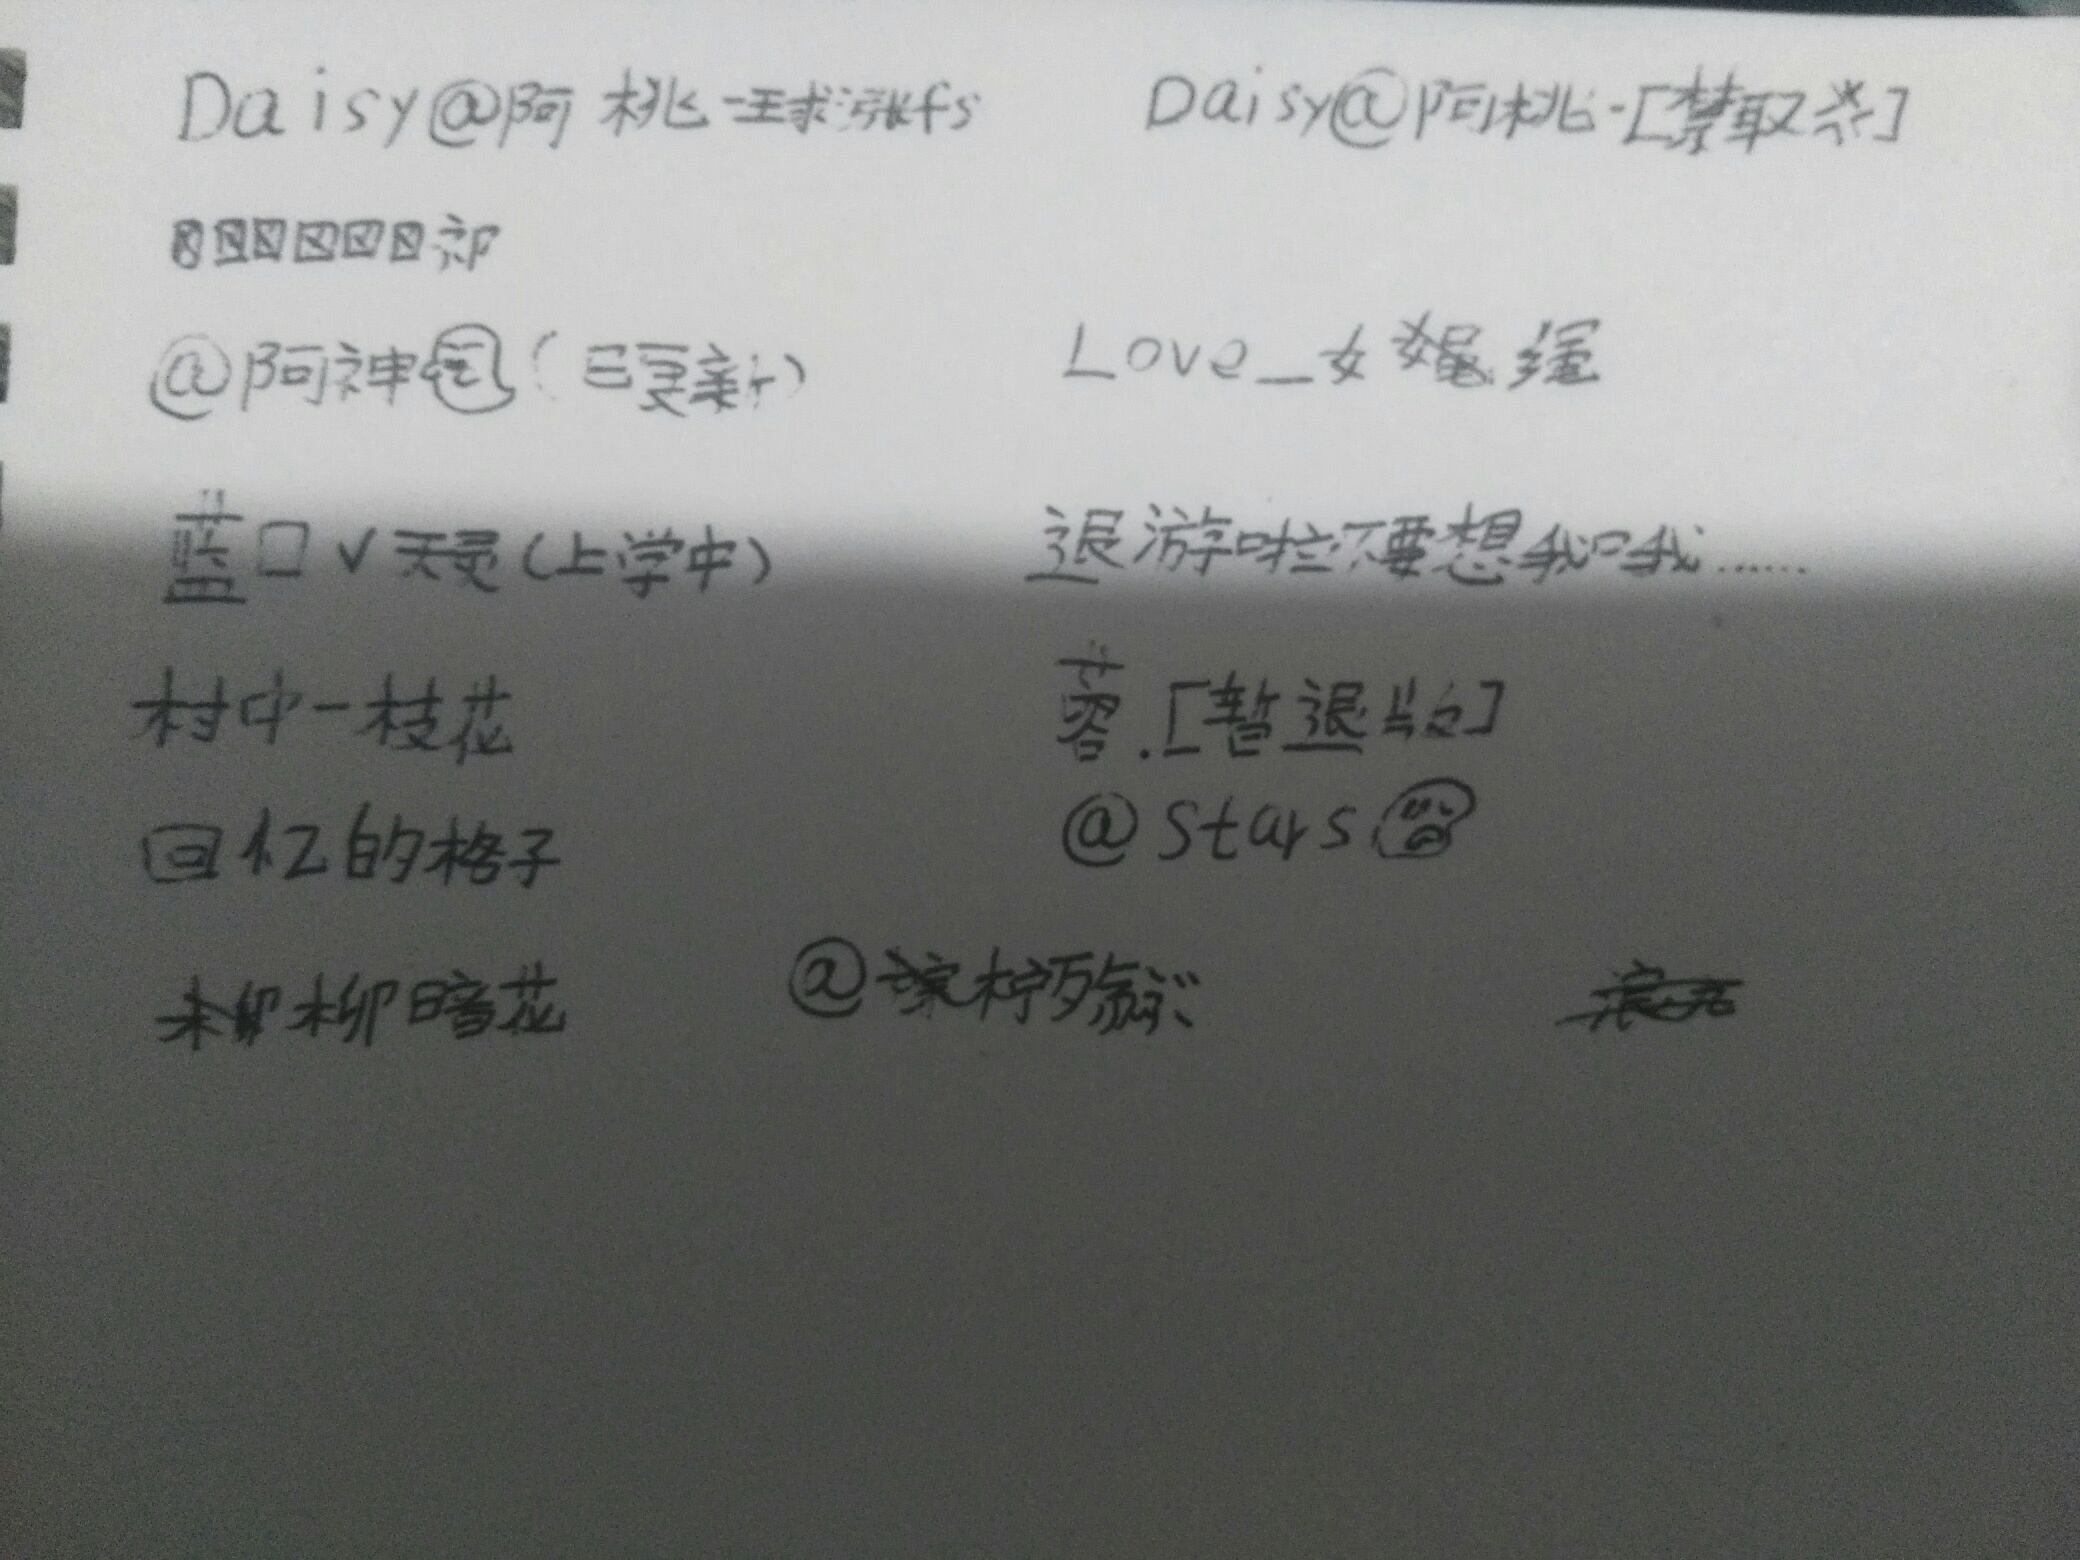 Daisy@阿桃-球涨fs Daisy@阿桃-[禁取关]
祁
@阿神(已更新) Love_女
蓝口v天灵(上学中) 退游啦不要想我哦……
村中一枝花 蓉.[暂退版]
回忆的格子 @Stars
柳暗花 @柠